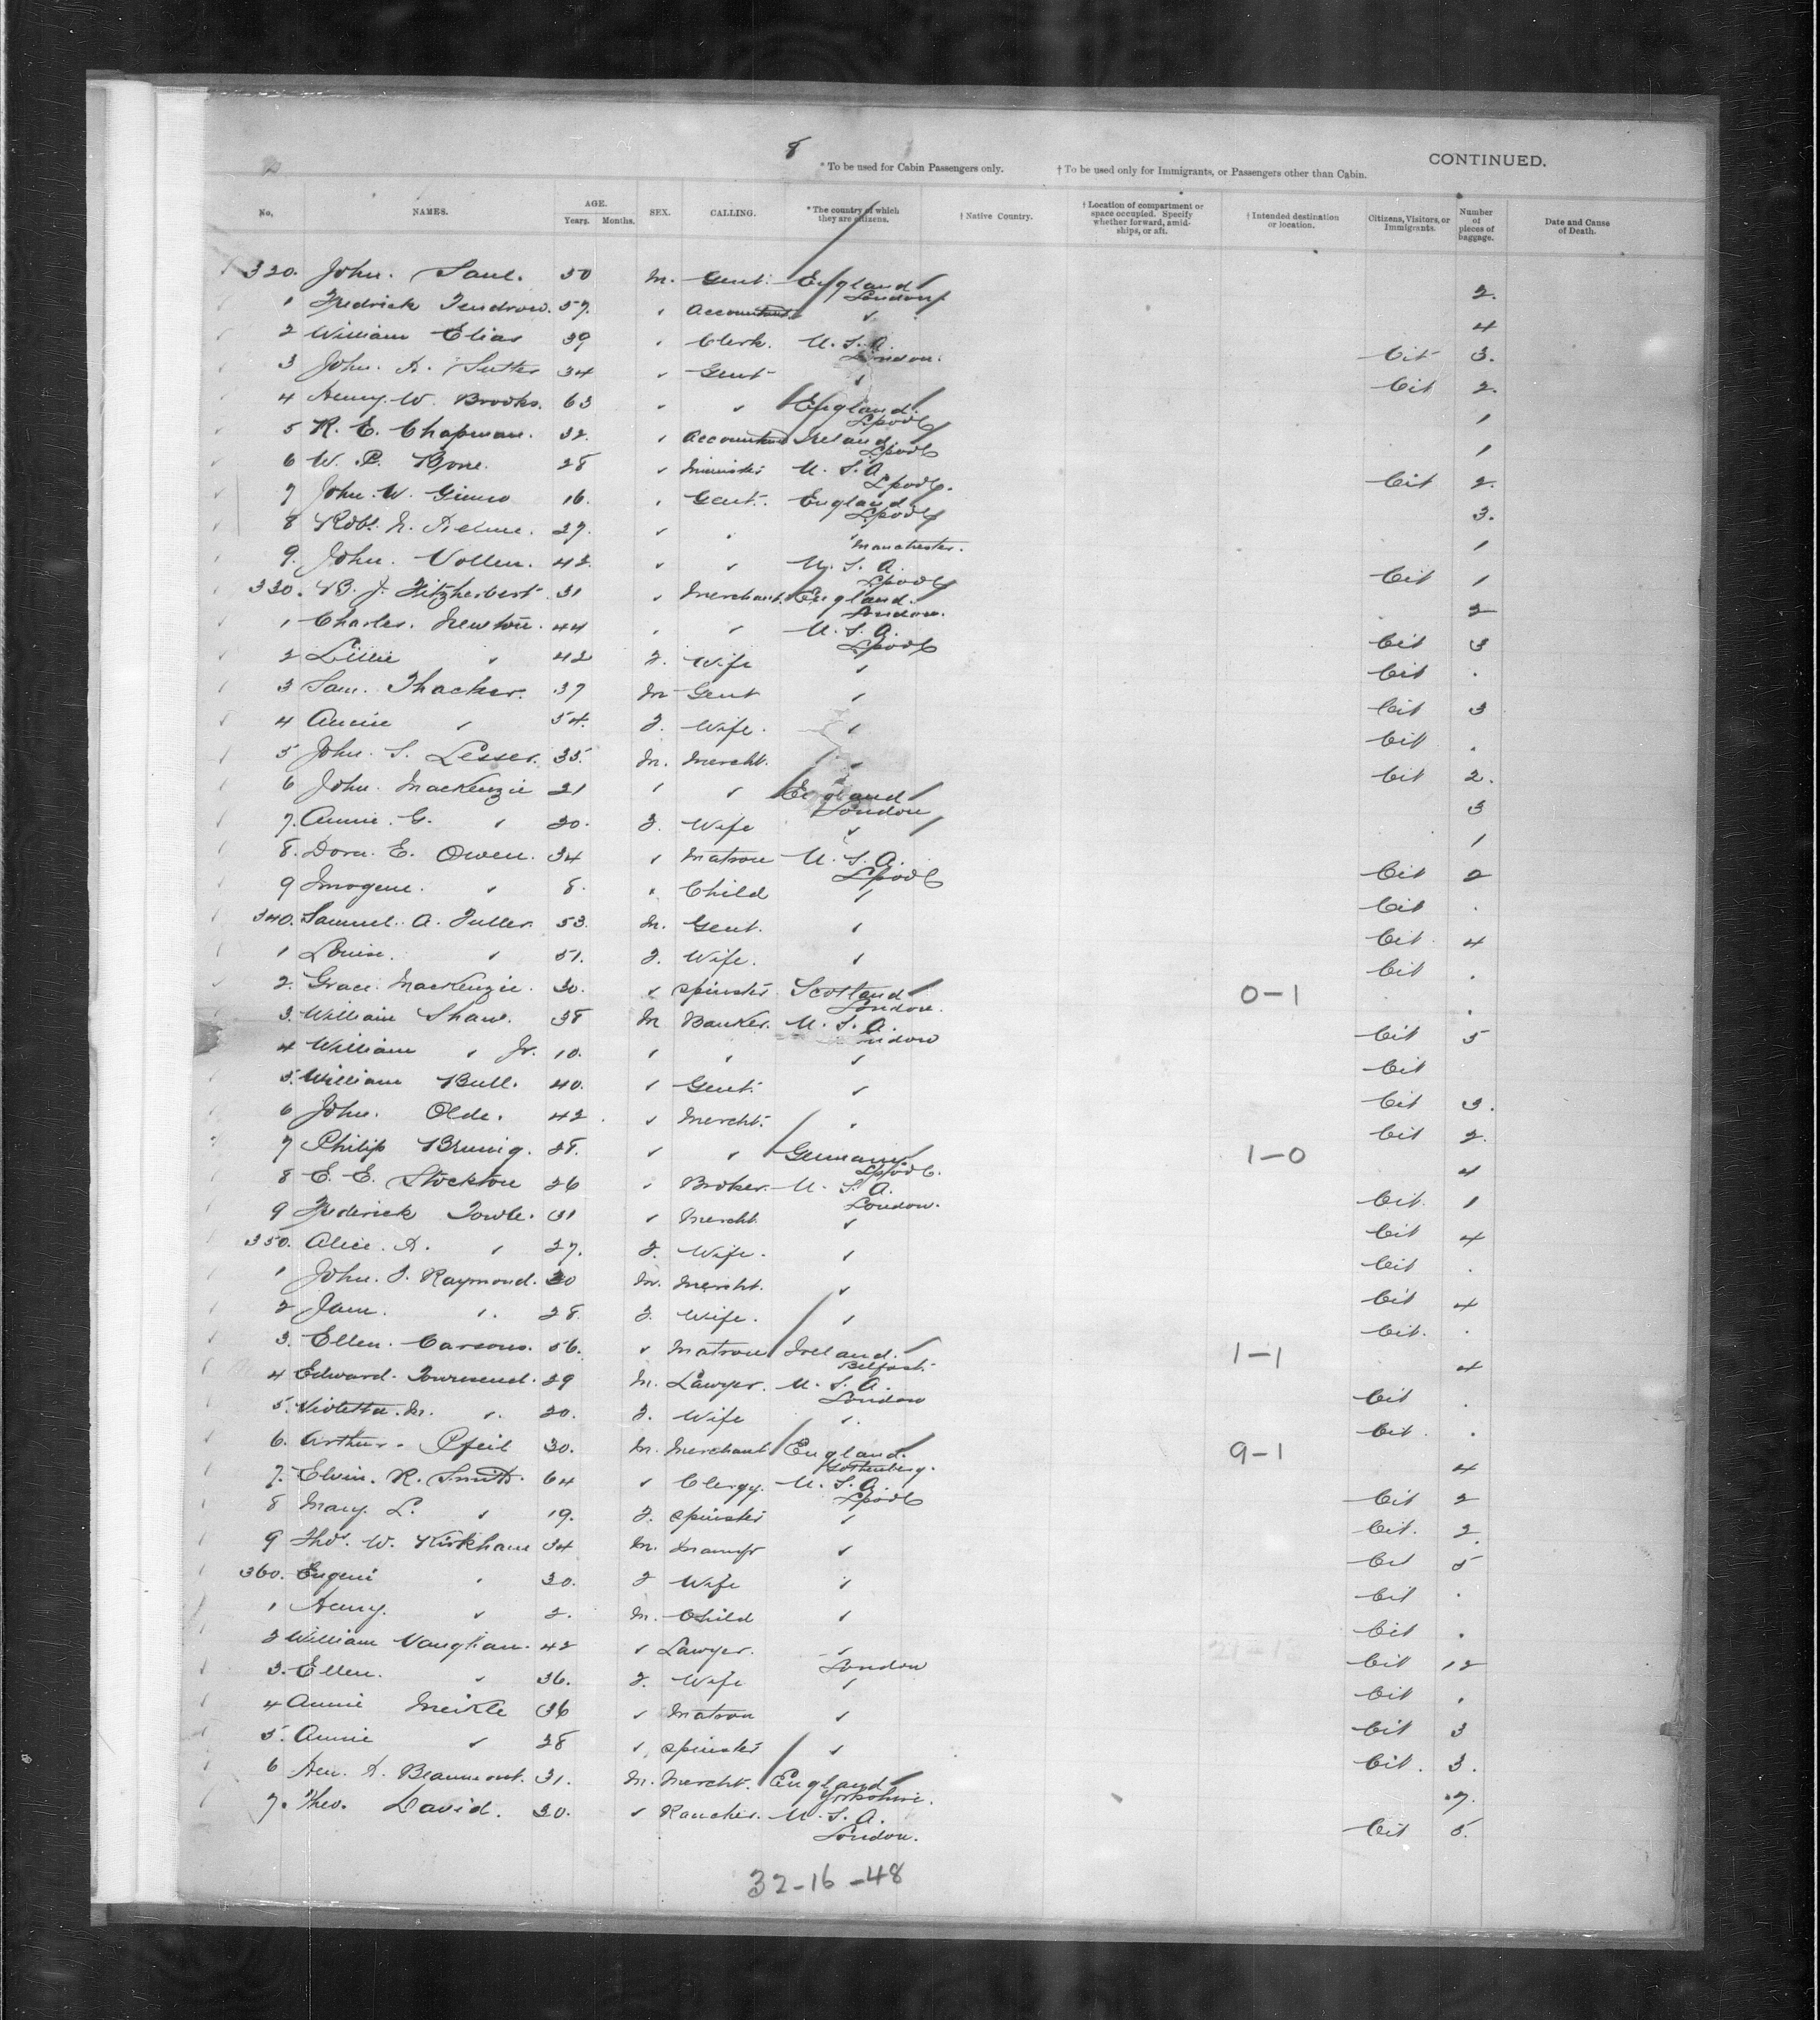 8
* To be used for Cabin Passengers only. † To be used only for Immigrants, or Passengers other than Cabin. CONTINUED.
No. NAMES. AGE. Years. Months. SEX. CALLING. * The country of which they are citizens. † Native Country. † Location of compartment or space occupied. Specify whether forward, amidships, or aft. † Intended destination or location. Citizens, Visitors, or Immigrants. Number of pieces of baggage. Date and Cause of Death.
320. John. Saul. 50 M. Gent. England London 2.
1 Fredrick 57. " Accountant " 4
2 William Elias 39 " Clerk. U.S.A. London. Cit 3.
3 John. A. Sutter 34 " Gent " Cit 2.
4 Henry. W. Brooks. 63 " " England. Lpool 1
5 R. E. Chapman. 32. " Accountant Ireland Lpool 1
6 W. P. Bone. 28 " Minister U.S.A. Lpool. Cit 2.
7 John. W. 16. " Gent. England Lpool 3.
8 Robt. 27. " " " Manchester. 1
9. John. Vollen. 42. " " U.S.A. Lpool Cit 1
330. J. Fitzherbert. 31 " Merchant. England. London. 2
1 Charles. Newton. 44 " " U.S.A. Lpool Cit 3
2 Lillie " 42 F. Wife " Cit .
3 Sam. Thacker. 37 M Gent " Cit 3
4 Annie " 54. F. Wife. " Cit .
5 John. S. Lesser. 35. M. Mercht. " Cit 2.
6 John. MacKenzie 21 " " England London 3
7. Annie. G. " 20. F. Wife " 1
8. Dora. E. Owen. 34 " Matron U.S.A. Lpool Cit 2
9 Imogene. " 8. " Child " Cit .
340. Samuel. A. Fuller. 53. M. Gent. " Cit. 4
1 Louise. " 51. F. Wife. " Cit .
2. Grace. MacKenzie. 30. " Spinster Scotland London. 0-1 .
3. William Shaw. 38 M Banker. U.S.A. London Cit 5
4 William " Jr. 10. " " " Cit
5. William Bull. 40. " Gent. " Cit 3.
6 John. Olde. 42. " Mercht. " Cit 2.
7 Philip Brunig. 28. " " Germany. Lpool. 1-0 4
8 E. E. Stockton 26 " Broker. U.S.A. London. Cit. 1
9 Frederick Towle. 31 " Mercht. " Cit 4
350. Alice. A. " 27. F. Wife. " Cit .
1 John. T. Raymond. 30 M. Mercht. " Cit 4
2 Jam. " 28. F. Wife. " Cit. .
3. Ellen. Carsons. 56. " Matron Ireland. Belfast. 1-1 4
4 Edward. Townsend. 29 M. Lawyer. U.S.A. London Cit .
5. Violetta. M. " 20. F. Wife " Cit. .
6. Arthur. Pfeil 30. M. Merchant England. Gothenberg. 9-1 4
7. Elvin. R. Smith. 64 " Clergy. U.S.A. Lpool Cit 2
8 Mary. L. " 19. F. Spinster " Cit. 2
9 Thos. W. Kirkham 34 M. Manufr " Cit 5
360. Eugeni " 30. F Wife " Cit .
1 Henry. " 2. M. Child " Cit .
2 William Vaughan. 42 " Lawyer. " London Cit 12
3. Ellen. " 36. F. Wife " Cit .
4 Annie Meikle 36 " Matron " Cit 3
5. Annie " 28 " Spinster " Cit. 3.
6 Hen. A. Beaumont. 31. M. Mercht. England Yorkshire. 7.
7. Theo. David. 30. " Rancher. U.S.A. London. Cit 5.
32-16-48